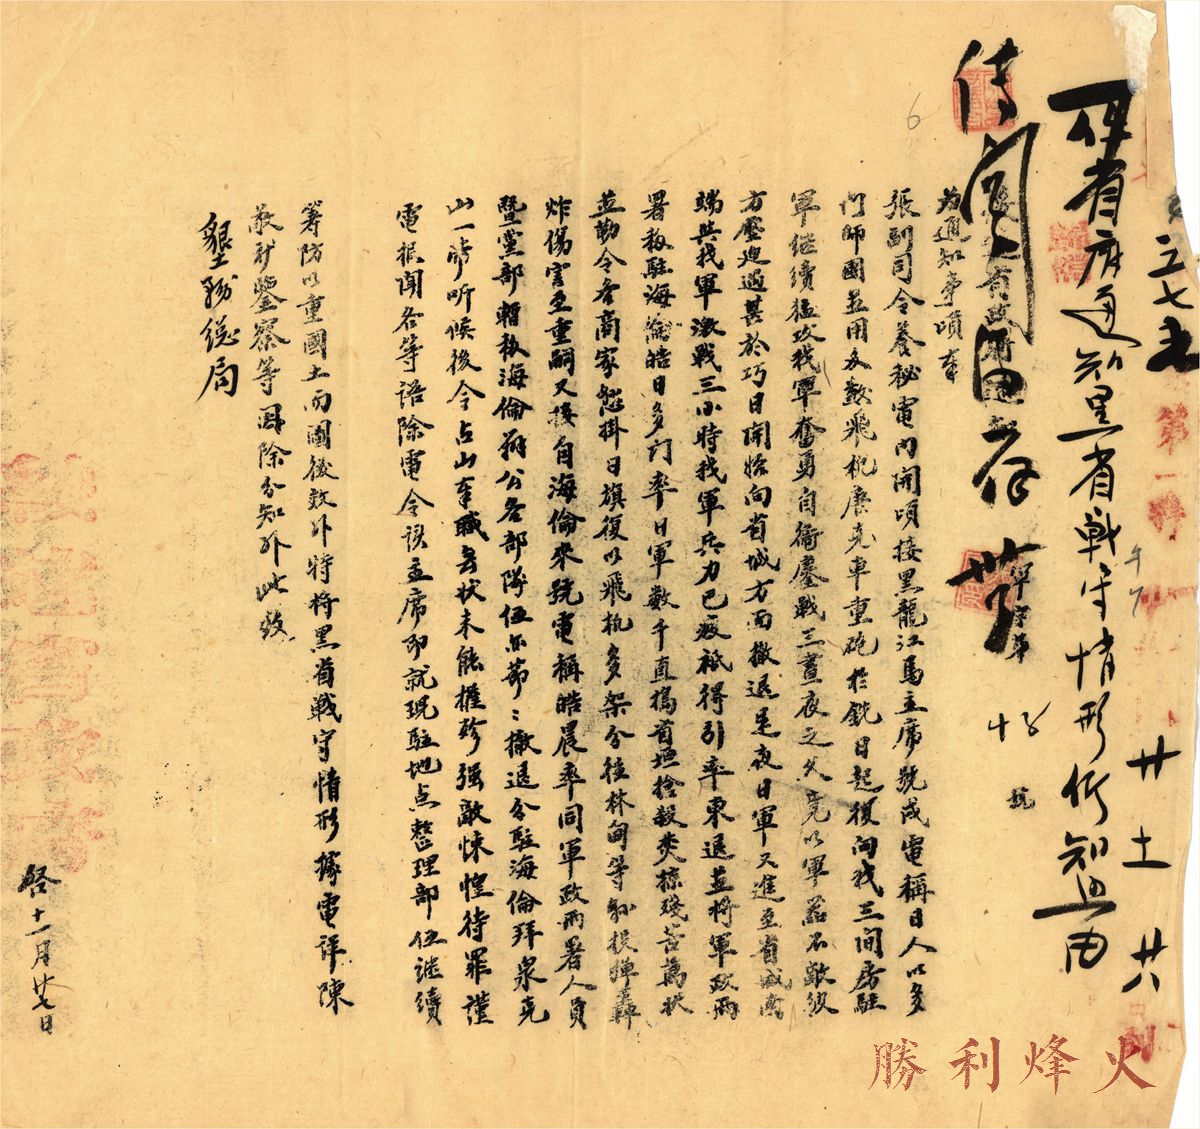 三七五
廿 土 廿八
第一科
准省府通知黑省戰守情形仰知照由
十 8 號
存
為通知事頃奉
張副司令養秘電內開頃接黑龍江馬主席號戌電稱日人以多
門師團並用多數飛機唐克車重砲於銑日起復向我三間房駐
軍繼續猛攻我軍奮勇自衛鏖戰三晝夜之久竟以軍器不敵彼
方壓迫過甚於巧日開始向省城方面撤退是夜日軍又進至省城
端與我軍激戰三小時我軍兵力已疲祇得引率東退並將軍政兩
署移駐海倫皓日多門率日軍數千直搗省垣搶殺焚掠殘苦萬狀
並勒令各商家懸掛日旗復以飛機多架分往林甸等縣投彈轟
炸傷害至重嗣又接自海倫來號電稱皓晨率同軍政兩署人員
暨黨部暫移海倫辦公各部隊伍亦節節撤退分駐海倫拜泉克
山一帶听候後令占山奉職無狀未能摧殄强敵悚惶待罪謹
電報聞各等語除電令該主席即就現駐地点整理部伍繼續
籌防以重國土而圖後效外特將黑省戰守情形據電詳陳
敬祈鑒察等因除分知外此致
墾務總局
啓 十一月廿七日
6
勝利烽火